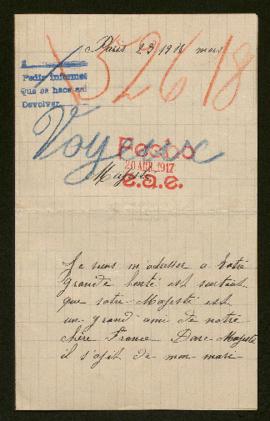 Paris 23 1918 mars
15261 8
Pedir informes
Que se hace así
Devolver.
Voyeux
Fecho
20 ABR. 1917
e.a.e.
Majesté
Je viens m'adresser a Votre
grande bonté est surtout
que votre Majesté est
un grand ami de notre
chère France Donc Majesté
il s'agit de mon mari